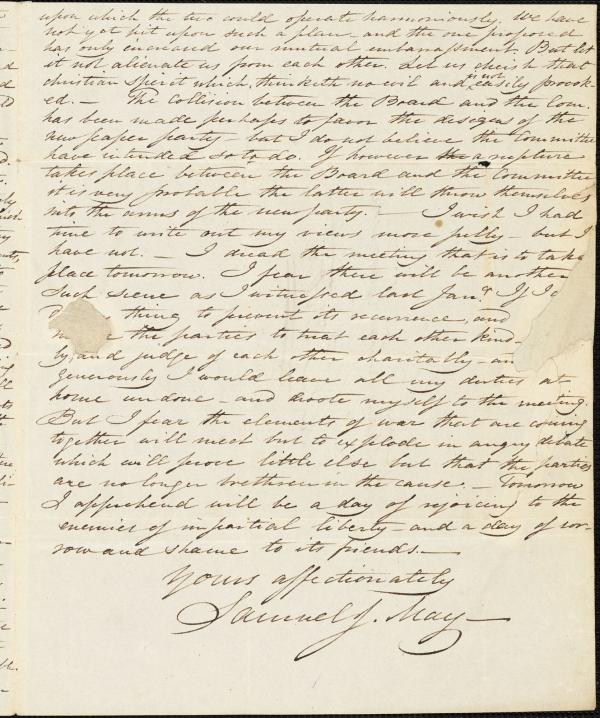 upon which the two could operate harmoniously. We have
not yet hit upon such a plan - and the one proposed
has only increased our mutual embarrassment. But let
it not alienate us from each other. Let us cherish that
christian spirit which, thinketh no evil and is not easily provok-
ed. - The collision between the Board and the Com.
has been made perhaps to favor the designs of the
new paper party but I do not believe the Committee
have intended so to do. If however the a rupture
takes place between the Board and the Committee
it is very probable the latter will throw themselves
into the arms of the new party. - I wish I had
time to write out my views more fully but I
have not. - I dread the meeting that is to take
place tomorrow. I fear there will be another
such scene as I witnessed last Jany. If I
thing to prevent its recurrence, and
the parties to treat each other kind-
ly, and judge of each other charitably - an
generously I would leave all my duties at
home undone - and devote myself to the meeting.
But I fear the elements of war that are coming
together will meet but to explode in angry debate
which will prove little else but that the parties
are no longer brethren in the cause. - Tomorrow
I apprehend will be a day of rejoicing to the
enemies of impartial liberty - and a day of sor-
row and shame to its friends. -
Yours affectionately
Samuel J. May -